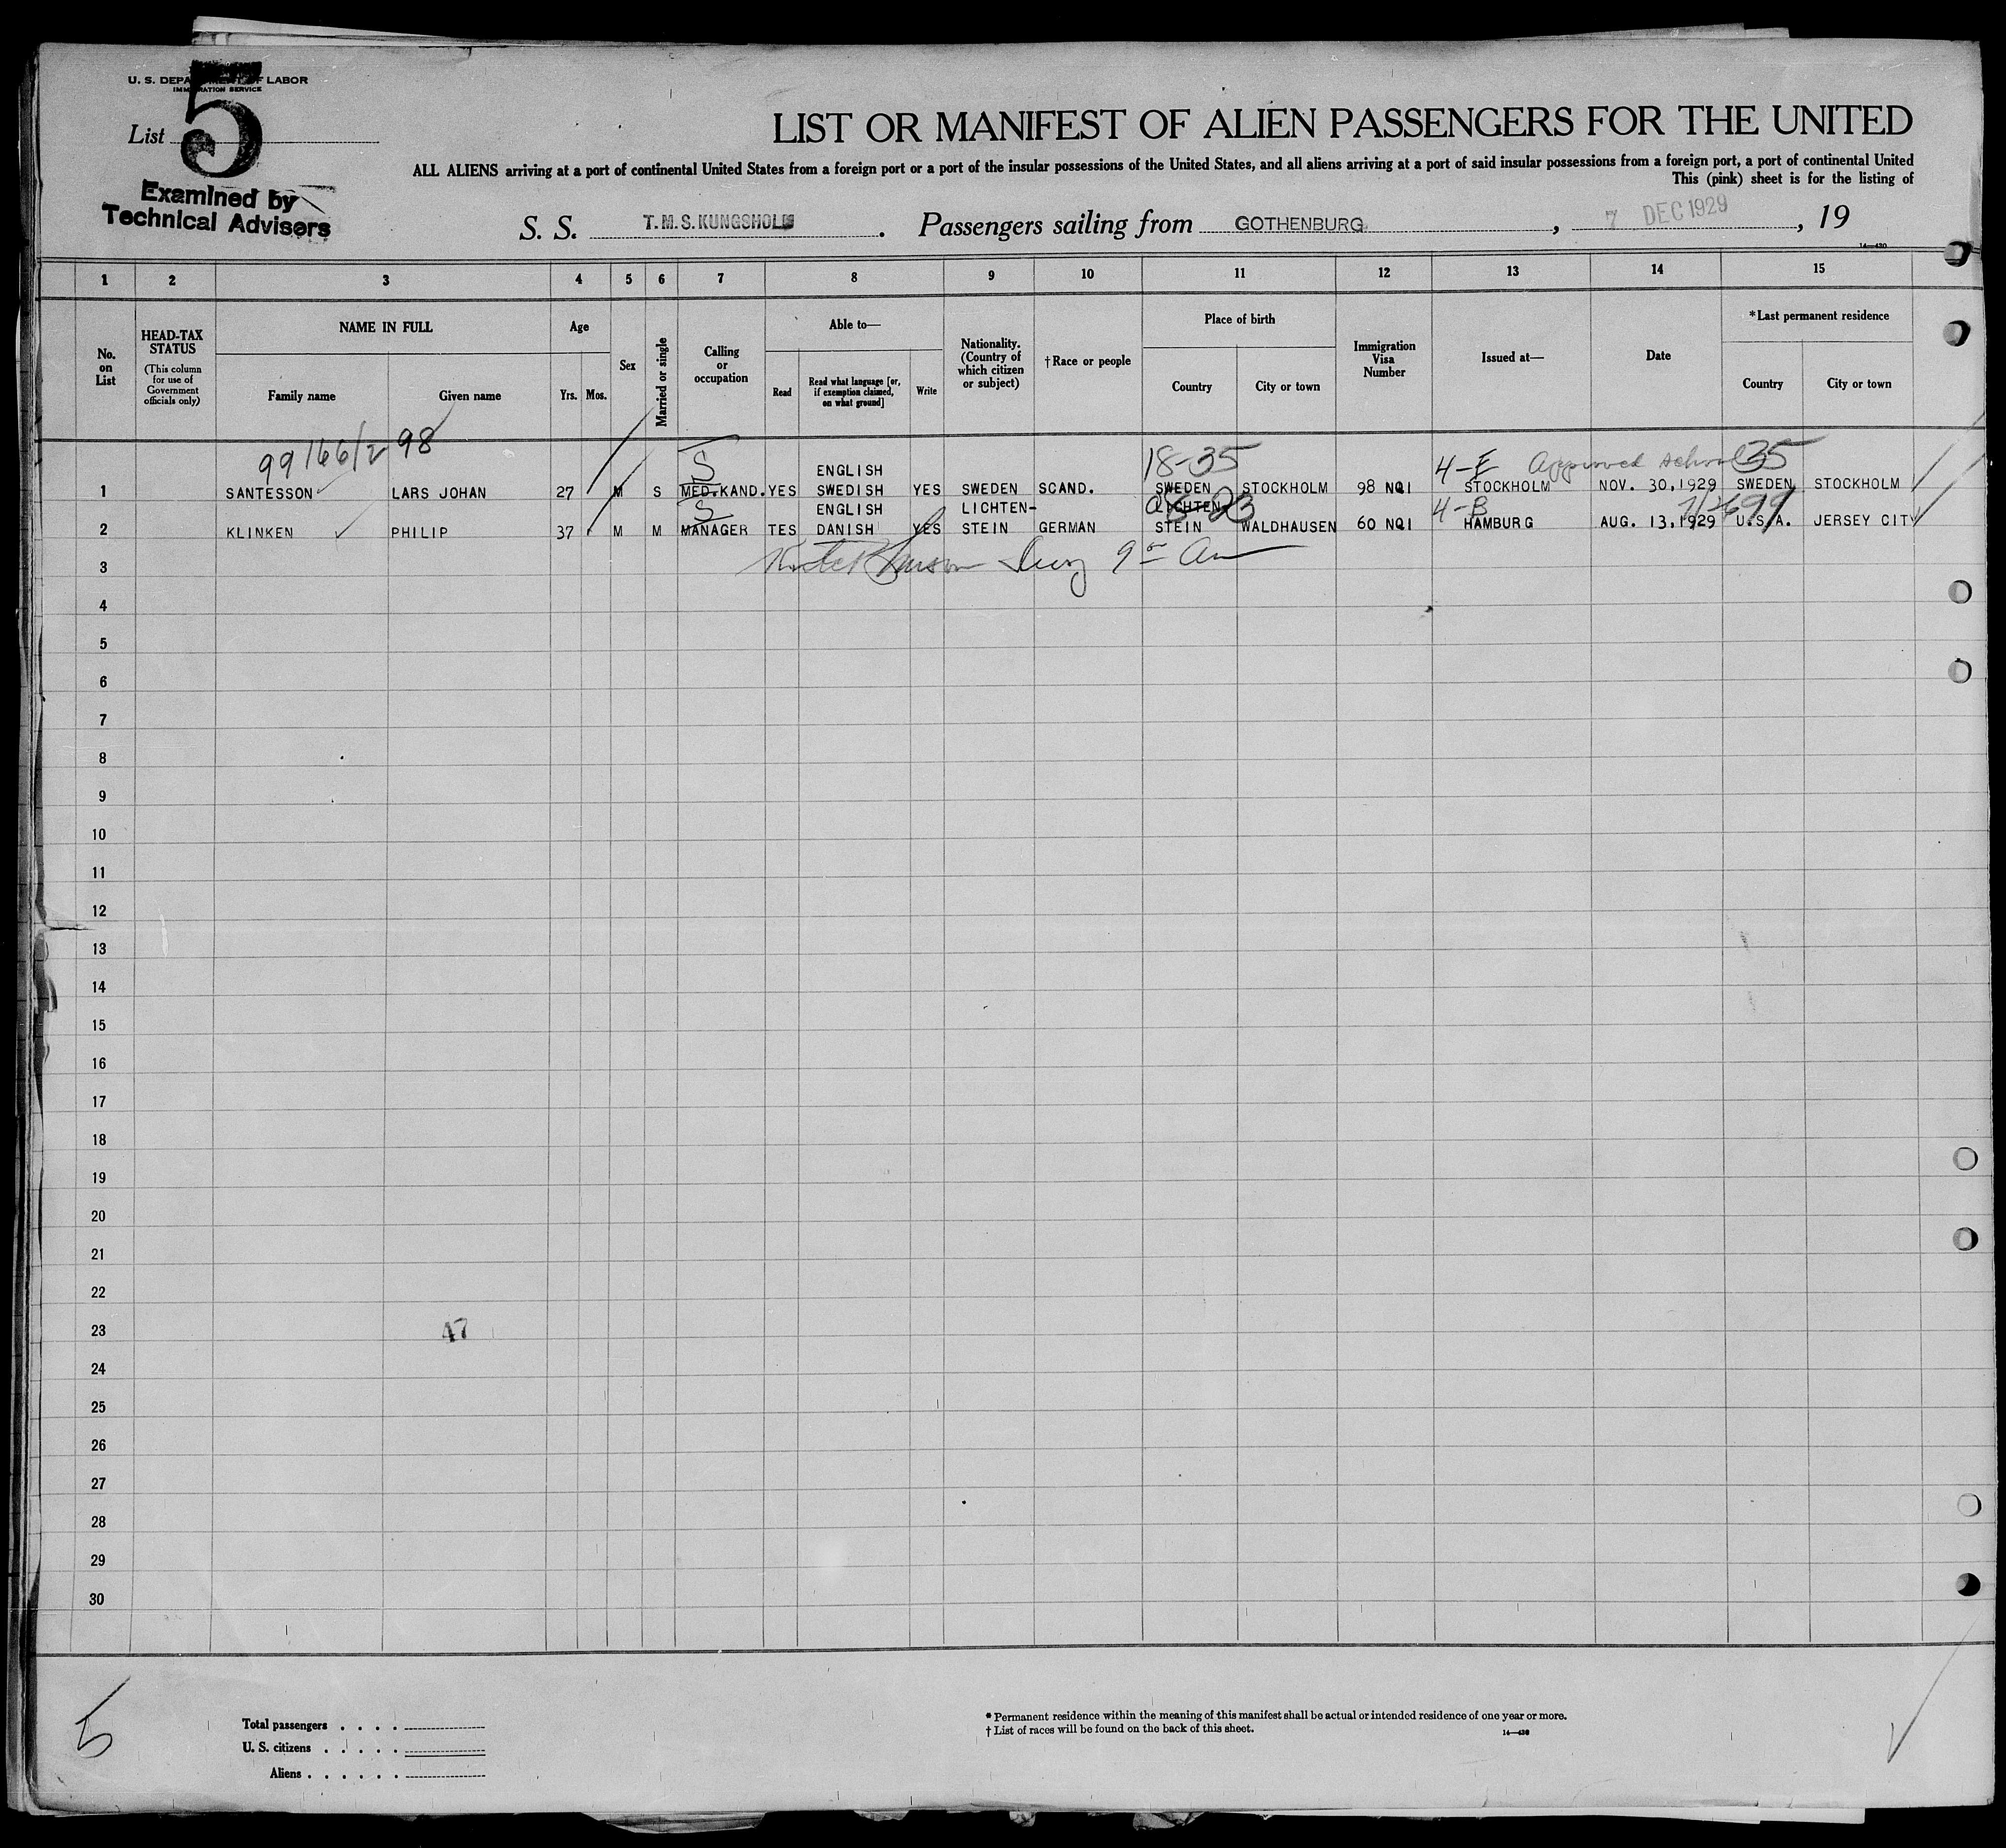 U. S. DEPARTMENT OF LABOR
IMMIGRATION SERVICE
List 5
Examined by
Technical Advisers
LIST OR MANIFEST OF ALIEN PASSENGERS FOR THE UNITED
ALL ALIENS arriving at a port of continental United States from a foreign port or a port of the insular possessions of the United States, and all aliens arriving at a port of said insular possessions from a foreign port, a port of continental United
This (pink) sheet is for the listing of
S. S. T.M.S.KUNGSHOLM . Passengers sailing from GOTHENBURG , 7 DEC 1929 , 19
14—430
1 2 3 4 5 6 7 8 9 10 11 12 13 14 15
No. on List
HEAD-TAX STATUS
(This column for use of Government officials only)
NAME IN FULL
Family name Given name
Age
Yrs. Mos.
Sex
Married or single
Calling or occupation
Able to—
Read
Read what language [or, if exemption claimed, on what ground]
Write
Nationality. (Country of which citizen or subject)
† Race or people
Place of birth
Country City or town
Immigration Visa Number
Issued at—
Date
*Last permanent residence
Country City or town
99 166/2 98 S 18-35 4-E Approved school 35
ENGLISH
1 SANTESSON LARS JOHAN 27 M S MED.KAND. YES SWEDISH YES SWEDEN SCAND. SWEDEN STOCKHOLM 98 NQI STOCKHOLM NOV. 30,1929 SWEDEN STOCKHOLM
S ENGLISH LICHTEN- LICHTEN- 4-B 699
2 KLINKEN PHILIP 37 M M MANAGER TES DANISH YES STEIN GERMAN STEIN WALDHAUSEN 60 NQI HAMBURG AUG. 13,1929 U.S.A. JERSEY CITY
3
4
5
6
7
8
9
10
11
12
13
14
15
16
17
18
19
20
21
22
23 47
24
25
26
27
28
29
30
5
Total passengers . . . .
U. S. citizens . . . . .
Aliens . . . . . .
* Permanent residence within the meaning of this manifest shall be actual or intended residence of one year or more.
† List of races will be found on the back of this sheet. 14—430